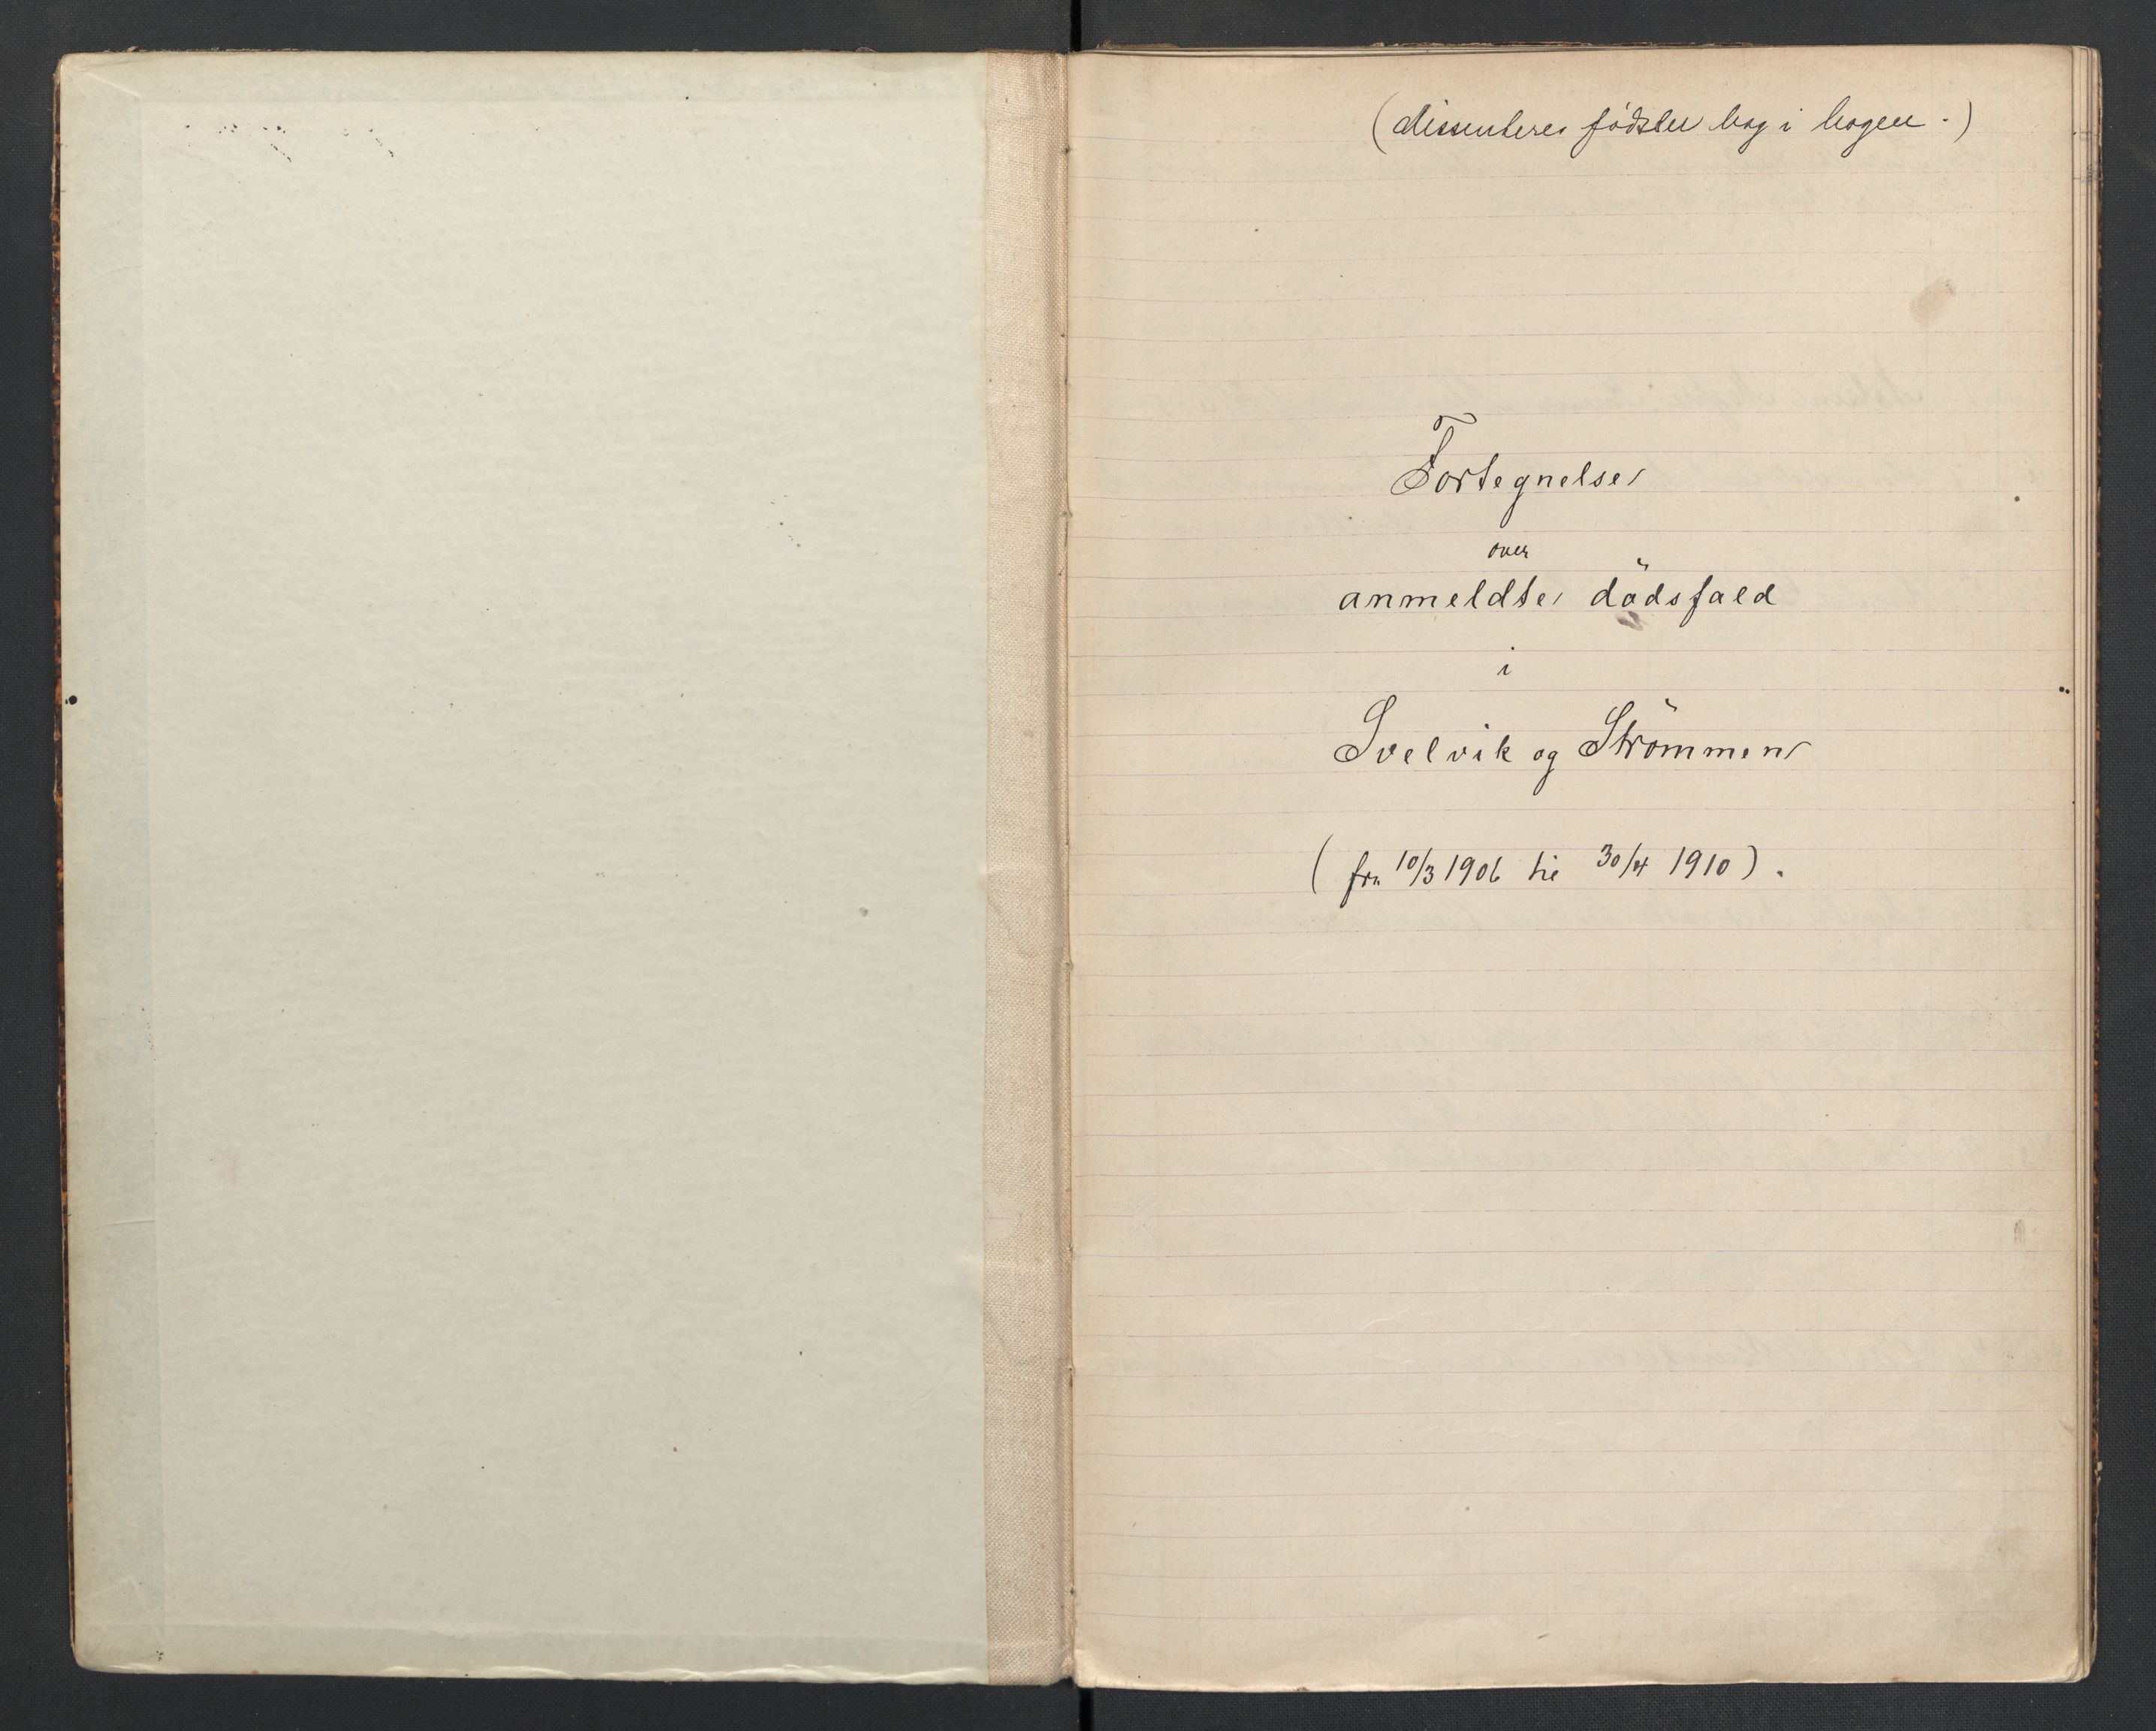 (dissenteres födsler bag i bogen.)
Fortegnelse
over
anmeldte dödsfald
i
Svelvik og Strömmen
(fra 10/3 1906 til 30/4 1910).